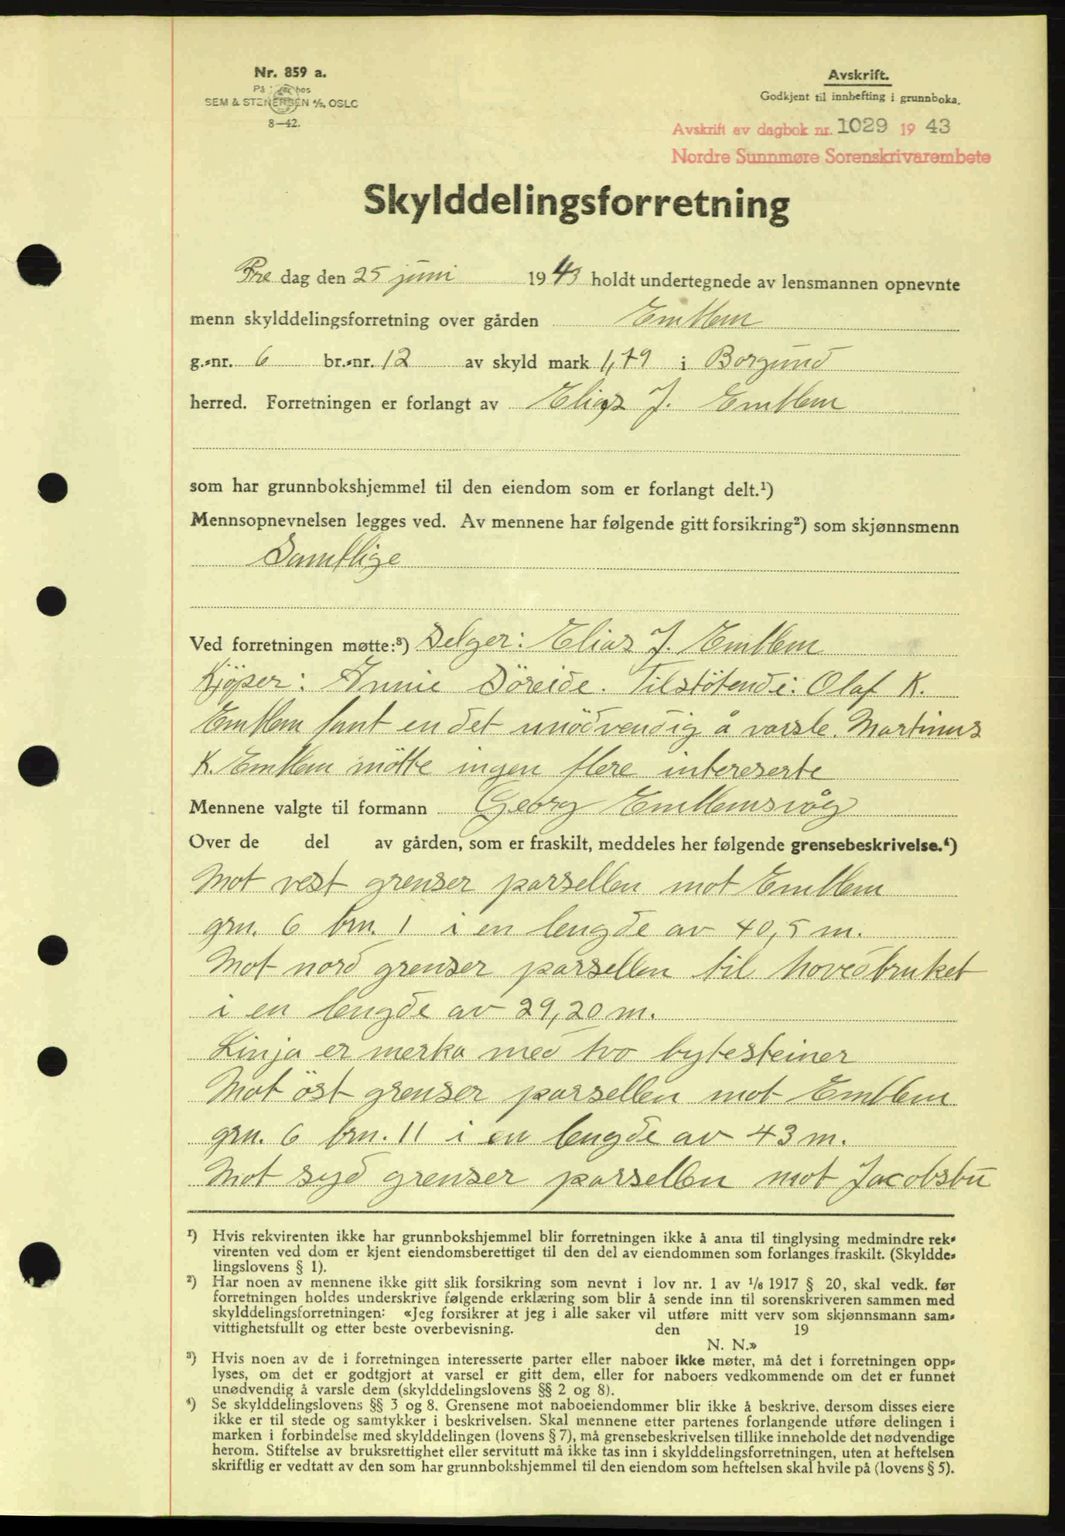 Nr. 859 a.
På hos
SEM & STENERSEN A/S, OSLO
8—42.
Avskrift.
Godkjent til innhefting i grunnboka.
Avskrift av dagbok nr. 1029 19 43
Nordre Sunnmøre Sorenskrivarembete
Skylddelingsforretning
Fre dag den 25 juni 1943 holdt undertegnede av lensmannen opnevnte
menn skylddelingsforretning over gården Emblem
g.-nr. 6 br.-nr. 12 av skyld mark 1,79 i Borgund
herred. Forretningen er forlangt av Elias J. Emblem
som har grunnbokshjemmel til den eiendom som er forlangt delt.¹)
Mennsopnevnelsen legges ved. Av mennene har følgende gitt forsikring²) som skjønnsmenn
Samtlige
Ved forretningen møtte:³) Selger: Elias J. Emblem
Kjöper: Annie Söreide. Tilstötende: Olaf K.
Emblem fant en det unödvendig å varsle. Martinus
K. Emblem mötte ingen flere intereserte
Mennene valgte til formann Georg Emblemsvåg
Over de del av gården, som er fraskilt, meddeles her følgende grensebeskrivelse.⁴)
Mot vest grenser parsellen mot Emblem
grn. 6 brn. 1 i en lengde av 40,5 m.
Mot nord grenser parsellen til hovedbruket
i en lengde av 29,20 m.
Linja er merka med tvo bytesteiner
Mot öst grenser parsellen mot Emblem
grn. 6 brn. 11 i en lengde av 43 m.
Mot syd grenser parsellen mot Jacobsbu
¹) Hvis rekvirenten ikke har grunnbokshjemmel blir forretningen ikke å anta til tinglysing medmindre rek-
virenten ved dom er kjent eiendomsberettiget til den del av eiendommen som forlanges fraskilt. (Skyldde-
lingslovens § 1).
²) Har noen av mennene ikke gitt slik forsikring som nevnt i lov nr. 1 av 1/6 1917 § 20, skal vedk. før
forretningen holdes underskrive følgende erklæring som blir å sende inn til sorenskriveren sammen med
skylddelingsforretningen: «Jeg forsikrer at jeg i alle saker vil utføre mitt verv som skjønnsmann sam-
vittighetsfullt og etter beste overbevisning. den 19
N. N.»
³) Hvis noen av de i forretningen interesserte parter eller naboer ikke møter, må det i forretningen opp-
lyses, om det er godtgjort at varsel er gitt dem, eller for naboers vedkommende om det er funnet
unødvendig å varsle dem (skylddelingslovens §§ 2 og 8).
⁴) Se skylddelingslovens §§ 3 og 8. Grensene mot naboeiendommer blir ikke å beskrive, dersom disses eiere
ikke er til stede og samtykker i beskrivelsen. Skal mennene etter partenes forlangende utføre delingen i
marken i forbindelse med skylddelingen (lovens § 7), må grensebeskrivelsen tillike inneholde det nødvendige
herom. Stiftelse av bruksrettighet eller servitutt må ikke tas inn i skylddelingsforretningen, uten at heftelsen
skriftlig er vedtatt av den som har grunnbokshjemmel til den eiendom som heftelsen skal hvile på (lovens § 5).